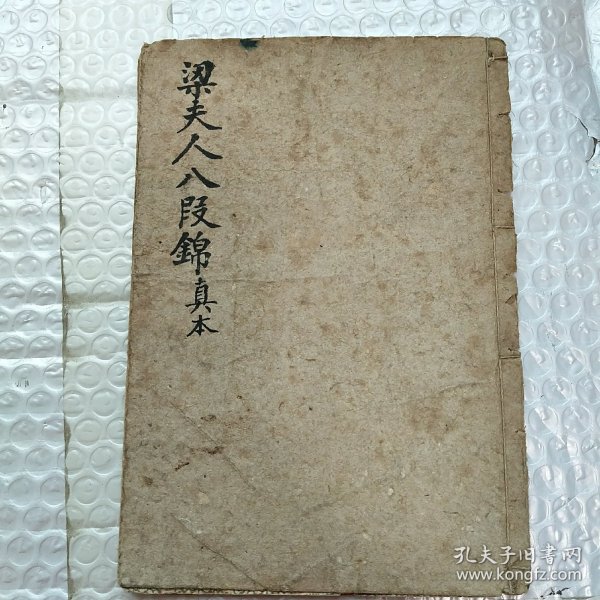 梁夫人八段錦真本
孔夫子旧书网
www.kongfz.com